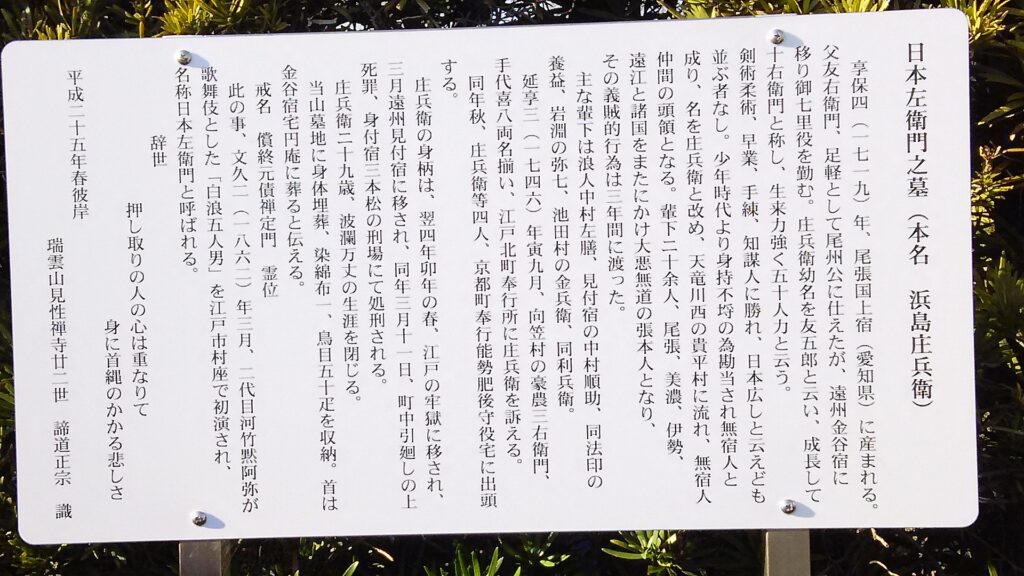 日本左衛門之墓（本名　浜島庄兵衛）
享保四（一七一九）年、尾張国上宿（愛知県）に産まれる。
父友右衛門、足軽として尾州公に仕えたが、遠州金谷宿に
移り御七里役を勤む。庄兵衛幼名を友五郎と云い、成長して
十右衛門と称し、生来力強く五十人力と云う。
剣術柔術、早業、手練、知謀人に勝れ、日本広しと云えども
並ぶ者なし。少年時代より身持不埒の為勘当され無宿人と
成り、名を庄兵衛と改め、天竜川西の貴平村に流れ、無宿人
仲間の頭領となる。輩下二十余人、尾張、美濃、伊勢、
遠江と諸国をまたにかけ大悪無道の張本人となり、
その義賊的行為は三年間に渡った。
主な輩下は浪人中村左膳、見付宿の中村順助、同法印の
養益、岩淵の弥七、池田村の金兵衛、同利兵衛。
延享三（一七四六）年寅九月、向笠村の豪農三右衛門、
手代喜八両名揃い、江戸北町奉行所に庄兵衛を訴える。
同年秋、庄兵衛等四人、京都町奉行能勢肥後守役宅に出頭
する。
庄兵衛の身柄は、翌四年卯年の春、江戸の牢獄に移され、
三月遠州見付宿に移され、同年三月十一日、町中引廻しの上
死罪、身付宿三本松の刑場にて処刑される。
庄兵衛二十九歳、波瀾万丈の生涯を閉じる。
当山墓地に身体埋葬、染綿布一、鳥目五十疋を収納。首は
金谷宿宅円庵に葬ると伝える。
戒名　償終元債禅定門　霊位
此の事、文久二（一八六二）年三月、二代目河竹黙阿弥が
歌舞伎とした「白浪五人男」を江戸市村座で初演され、
名称日本左衛門と呼ばれる。
辞世
押し取りの人の心は重なりて
身に首縄のかかる悲しさ
平成二十五年春彼岸
瑞雲山見性禅寺廿二世　諦道正宗　識